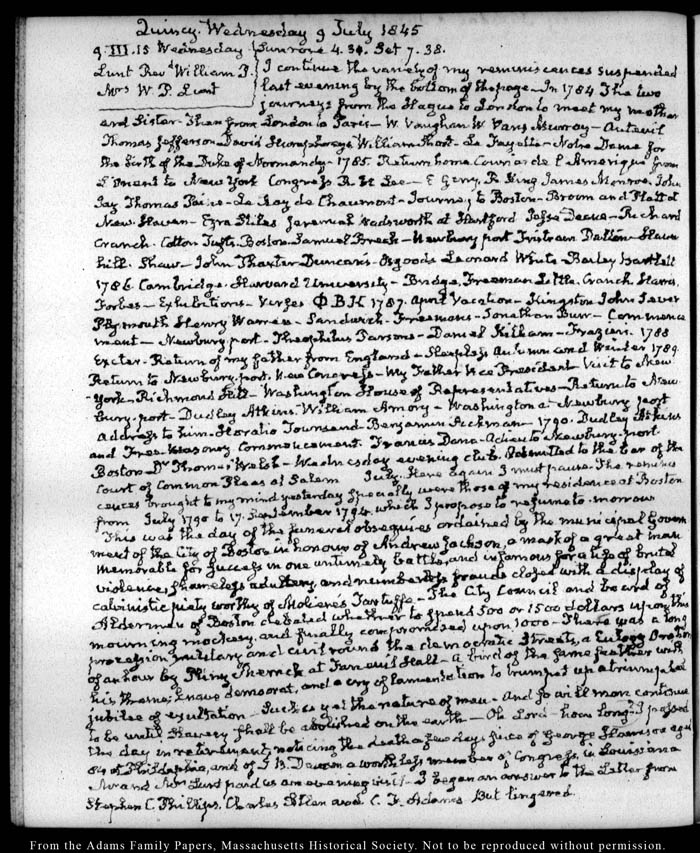 Quincy Wednesday 9 July 1845
9. III.15 Wednesday Sun rose 4.30. Set 7.38.
Lunt Revd William P. I continue the variety of my reminiscences suspended
Mrs W. P. Lunt last evening by the bottom of the page — In 1784 The two
journeys from the Hague to London to meet my mother
and Sister — Then from London to Paris — W. Vaughan W Vans Murray — Auteuil
Thomas Jefferson David Humphreys William Short — La Fayette — Notre Dame for
the birth of the Duke of Normandy — 1785. Return home Courier de l'Amerique from
L'Orient to New York Congress R. H Lee — E Gerry, R King James Monroe, John
Jay Thomas Paine — Le Ray de Chaumont — Journey to Boston — Broom and Platt at
New Haven — Ezra Stiles Jeremiah Wadsworth at Hartford Jesse Deane — Richard
Cranch. Cotton Tufts. Boston Samuel Breck — Newbury port Tristram Dalton — Haver
hill. Shaw — John Thaxter Duncan's — Osgoods Leonard White — Bailey Bartlett
1786. Cambridge. Harvard University — Bridge, Freeman Little. Cranch
Forbes — Exhibitions — Verses ΦΒΚ 1787. April Vacation — Kingston John Sever
Plymouth Henry Warren — Sandwich — Freemans — Jonathan Burr — Commence
ment — Newbury-port — Theophilus Parsons — Daniel Kilham — Frazier. 1788
Exeter — Return of my father from England — Sleepless Autumn and Winter 1789
Return to Newbury-port. New Congress — My Father Vice President Visit to New
-York — Richmond Hill — Washington House of Representatives — Return to New
bury-port — Dudley Atkins William Amory — Washington at Newbury port
Address to him — Horatio Townsend Benjamin Pickman — 1790. Dudley Atkins
and Free Masonry. Commencement. Francis Dana — Adieu to Newbury-port
Boston Dr Thomas Welsh — Wednesday evening club. Admitted to the bar of the
Court of Common Pleas at Salem July. Here again I must pause. The reminis
cences brought to my mind yesterday specially were those of my residence at Boston
from July 1790 to 17. September 1794. which I propose to refume to-morrow
This was the day of the funeral obsequies ordained by the municipal Govern
ment of the City of Boston in honour of Andrew Jackson, a mask of a great man
memorable for success in one untimely battle, and infamous for a life of brutal
violence, shameless adultery, and numberless frauds closed with a display of
calvinistic piety worthy of Moliere's Tartuffe — The City Council and board of
Aldermen of Boston debated whether to spend 500 or 1500 dollars upon this
mourning mockery, and finally compromised upon 1000 — There was a long
procession military and civil round the democratic Streets, a Eulogy Oration
of an hour by Pliny Merrick at Faneuil Hall — A bird of the same feather with
his theme, knave democrat, and a cry of lamentation to trumpet up a triumphal
jubilee of exultation — Such is yet the nature of man — And so will man continue
to be until Slavery shall be abolished on the earth — Oh Lord — how long? I passed
the day in retirement, noticing the death a few days since of George Harrison aged
84 at Philadelphia, and of J B. Dawson a worthless member of Congress, in Louisiana
Mr and Mrs Lunt paid us an evening visit — I began an answer to the Letter from
Stephen C. Phillips, Charles Allen and C. F. Adams But lingered.
From the Adams Family Papers, Massachusetts Historical Society. Not to be reproduced without permission.